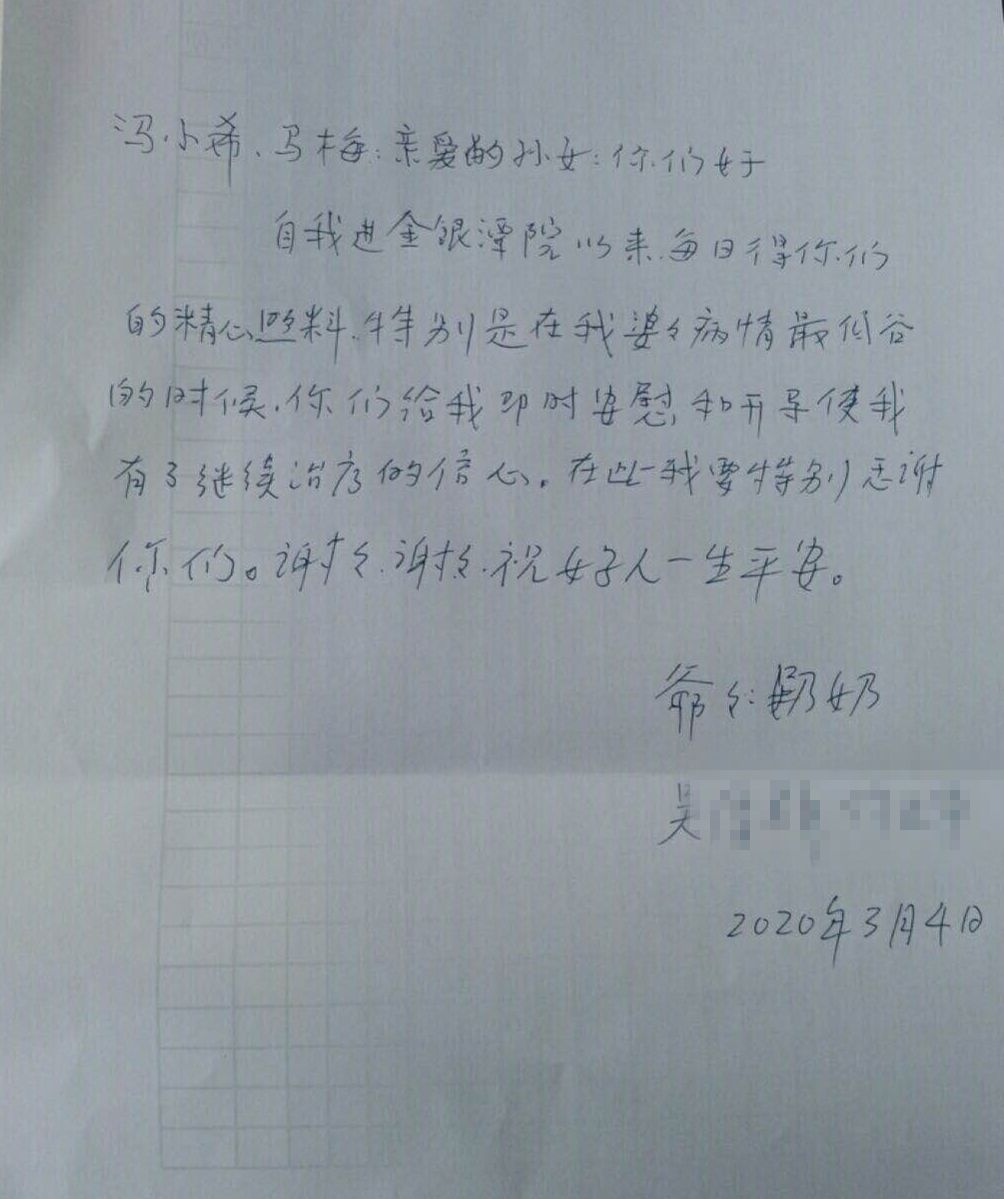 冯小希、马梅:亲爱的孙女:你们好
自我进金银潭院以来.每日得你们
的精心照料.特别是在我婆々病情最低谷
的时候.你们给我即时安慰和开导使我
有了继续治疗的信心。在此我要特别感谢
你们。谢々.谢々.祝好人一生平安。
爷々:奶奶
吴
2020年3月4日